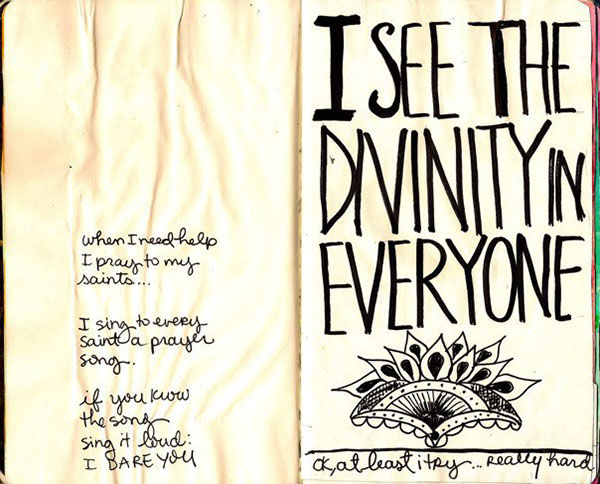 when I need help
I pray to my
saints...
I sing to every
saint a prayer
song.
if you know
the song
sing it loud:
I DARE YOU
I SEE THE
DIVINITY IN
EVERYONE
ok, at least i try... really hard